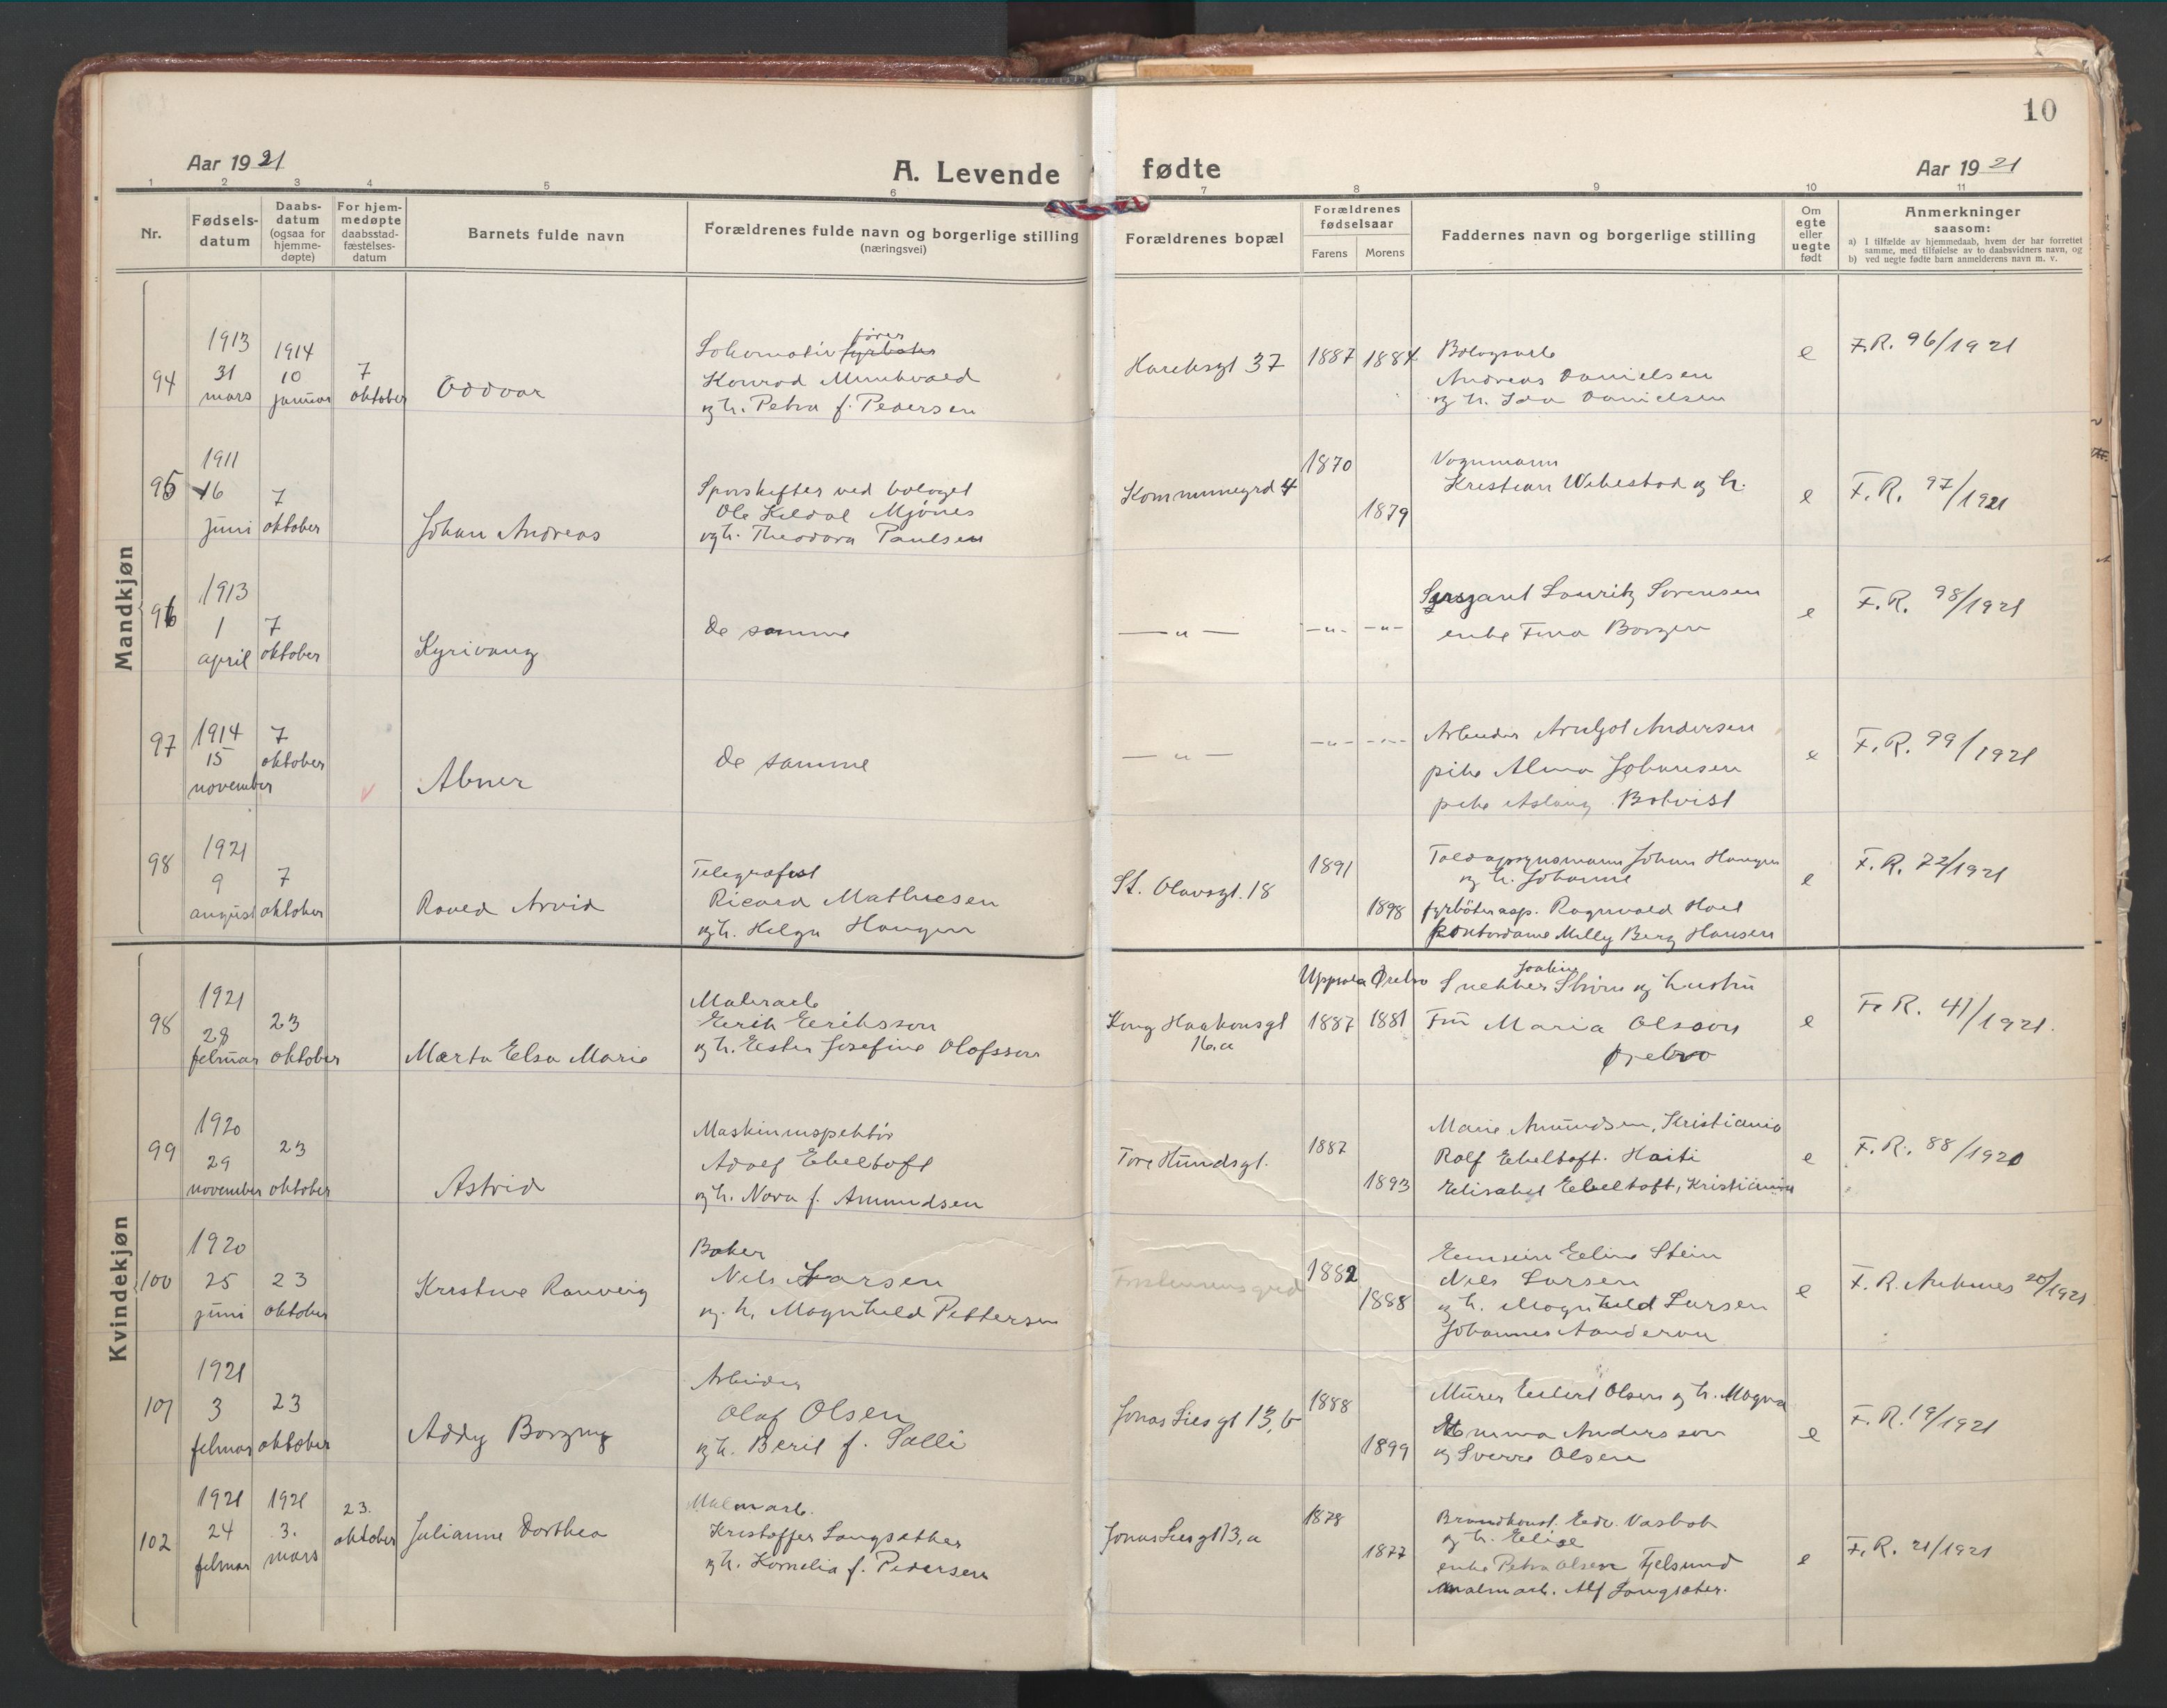 10
Aar 1921
A. Levende fødte
Aar 1921
1 2 3 4 5 6 7 8 9 10 11
Nr.
Fødsels-
datum
Daabs-
datum
(ogsaa for
hjemme-
døpte)
For hjem-
medøpte
daabsstad-
fæstelses-
datum
Barnets fulde navn
Forældrenes fulde navn og borgerlige stilling
(næringsvei)
Forældrenes bopæl
Forældrenes
fødselsaar
Farens Morens
Faddernes navn og borgerlige stilling
Om
egte
eller
uegte
født
Anmerkninger
saasom:
a) I tilfælde av hjemmedaab, hvem der har forrettet
samme, med tilføielse av to daabsvidners navn, og
b) ved uegte fødte barn anmelderens navn m. v.
Mandkjøn
94
1913
31
mars
1914
10
januar
7
oktober
Oddvar
fører
Lokomotiv fyrbøter
Konrad Munkvold
og h. Petra f. Pedersen
Hareksgt 37
1887 1884
Bologsarb
Andreas Danielsen
og h. Ida Danielsen
e
F.R. 96/1921
95
1911
16
juni
7
oktober
Johan Andreas
Sporskifter ved bolaget
Ole Kildal Mjønes
og h. Theodora Paulsen
Kommunegrd 4
1870
1879
Vognmann
Kristian Wibestad og h.
e
F.R. 97/1921
96
1913
1
april
7
oktober
Kyrivang
De samme
— " —
- " - - " -
Sersjant Lauritz Sørensen
enke Fina Borgen
e
F.R. 98/1921
97
1914
15
november
7
oktober
Abner
De samme
— " —
- " - - " -
Arbeider Arnljot Andersen
pike Alma Johansen
pike Aslaug Botvist
e
F.R. 99/1921
98
1921
9
august
7
oktober
Roald Arvid
Telegrafist
Ricard Mathiesen
og h. Helga Haugen
St. Olavsgt. 18
1891
1898
Toldopsynsmann Johan Haugen
og h. Johanne
fyrbøterasp. Ragnvald Hoel
kontordame Milly Berg Hansen
e
F.R. 72/1921
Kvindekjøn
98
1921
28
februar
23
oktober
Märta Elsa Marie
Malerarb
Erik Eriksson
og h. Ester Josefine Olofsson
Kong Haakonsgt
16.a
Uppsala Ørebro
1887 1881
Joakim
Snekker Strøm og hustru
Fru Maria Olsson
Ørebro
e
F.R. 41/1921.
99
1920
29
november
23
oktober
Astrid
Maskininspektør
Adolf Ebeltoft
og h. Nora f. Amundsen
Tore Hundsgt.
1887
1893
Marie Amundsen, Kristiania
Rolf Ebeltoft. Haiti
Elisabet Ebeltoft, Kristiania
e
F.R. 88/1920
100
1920
25
juni
23
oktober
Kristine Ranveig
Baker
Nils Larsen
og h. Magnhild Pettersen
1882
1888
Eline Stein
Nils Larsen
og h. Magnhild Larsen
Johannes
e
F.R. Ankenes 20/1921
101
1921
3
februar
23
oktober
Addy Borgny
Arbeider
Olaf Olsen
og h. Beril f. Salli
Jonas Liesgt 13, b
1888
1899
Murer Edvert Olsen og h. Magna
Emma Andersson
og Sverre Olsen
e
F.R. 19/1921
102
1921
24
februar
1921
3.
mars
23.
oktober
Julianne Dorthea
Malmarb.
Kristoffer Langsæther
og h. Kornelia f. Pedersen
Jonas Liesgt 13, a
1878
1877
Brandkonst. Edv. Vasbotn
og h. Elise
enke Petra Olsen Fjelsund
malmarb. Alf Langsæter.
e
F.R. 21/1921